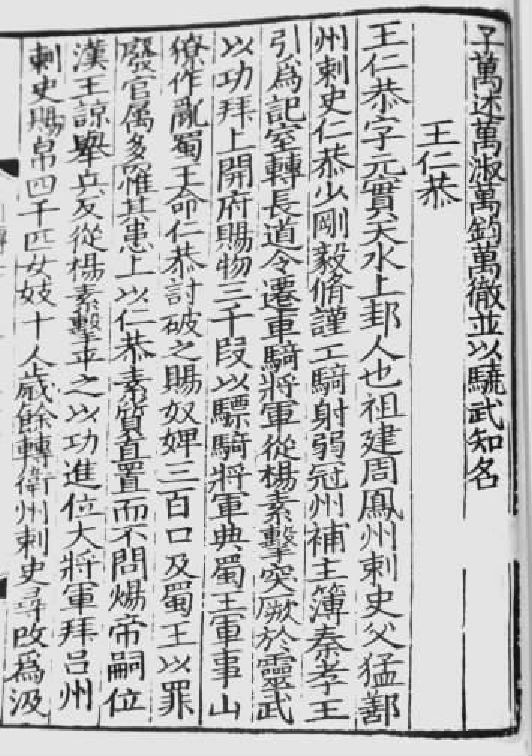 子萬述萬淑萬鈞萬徹並以驍武知名
王仁恭
王仁恭字元實天水上邽人也祖建周鳳州刺史父猛鄯
州刺史仁恭少剛毅脩謹工騎射弱冠州補主簿秦孝王
引為記室轉長道令遷車騎將軍從楊素擊突厥於靈武
以功拜上開府賜物三千段以驃騎將軍典蜀王軍事山
獠作亂蜀王命仁恭討破之賜奴婢三百口及蜀王以罪
廢官属多罹其患上以仁恭素質直置而不問煬帝嗣位
漢王諒舉兵反從楊素擊平之以功進位大將軍拜吕州
刺史賜帛四千匹女妓十人歲餘轉衛州刺史尋改為汲